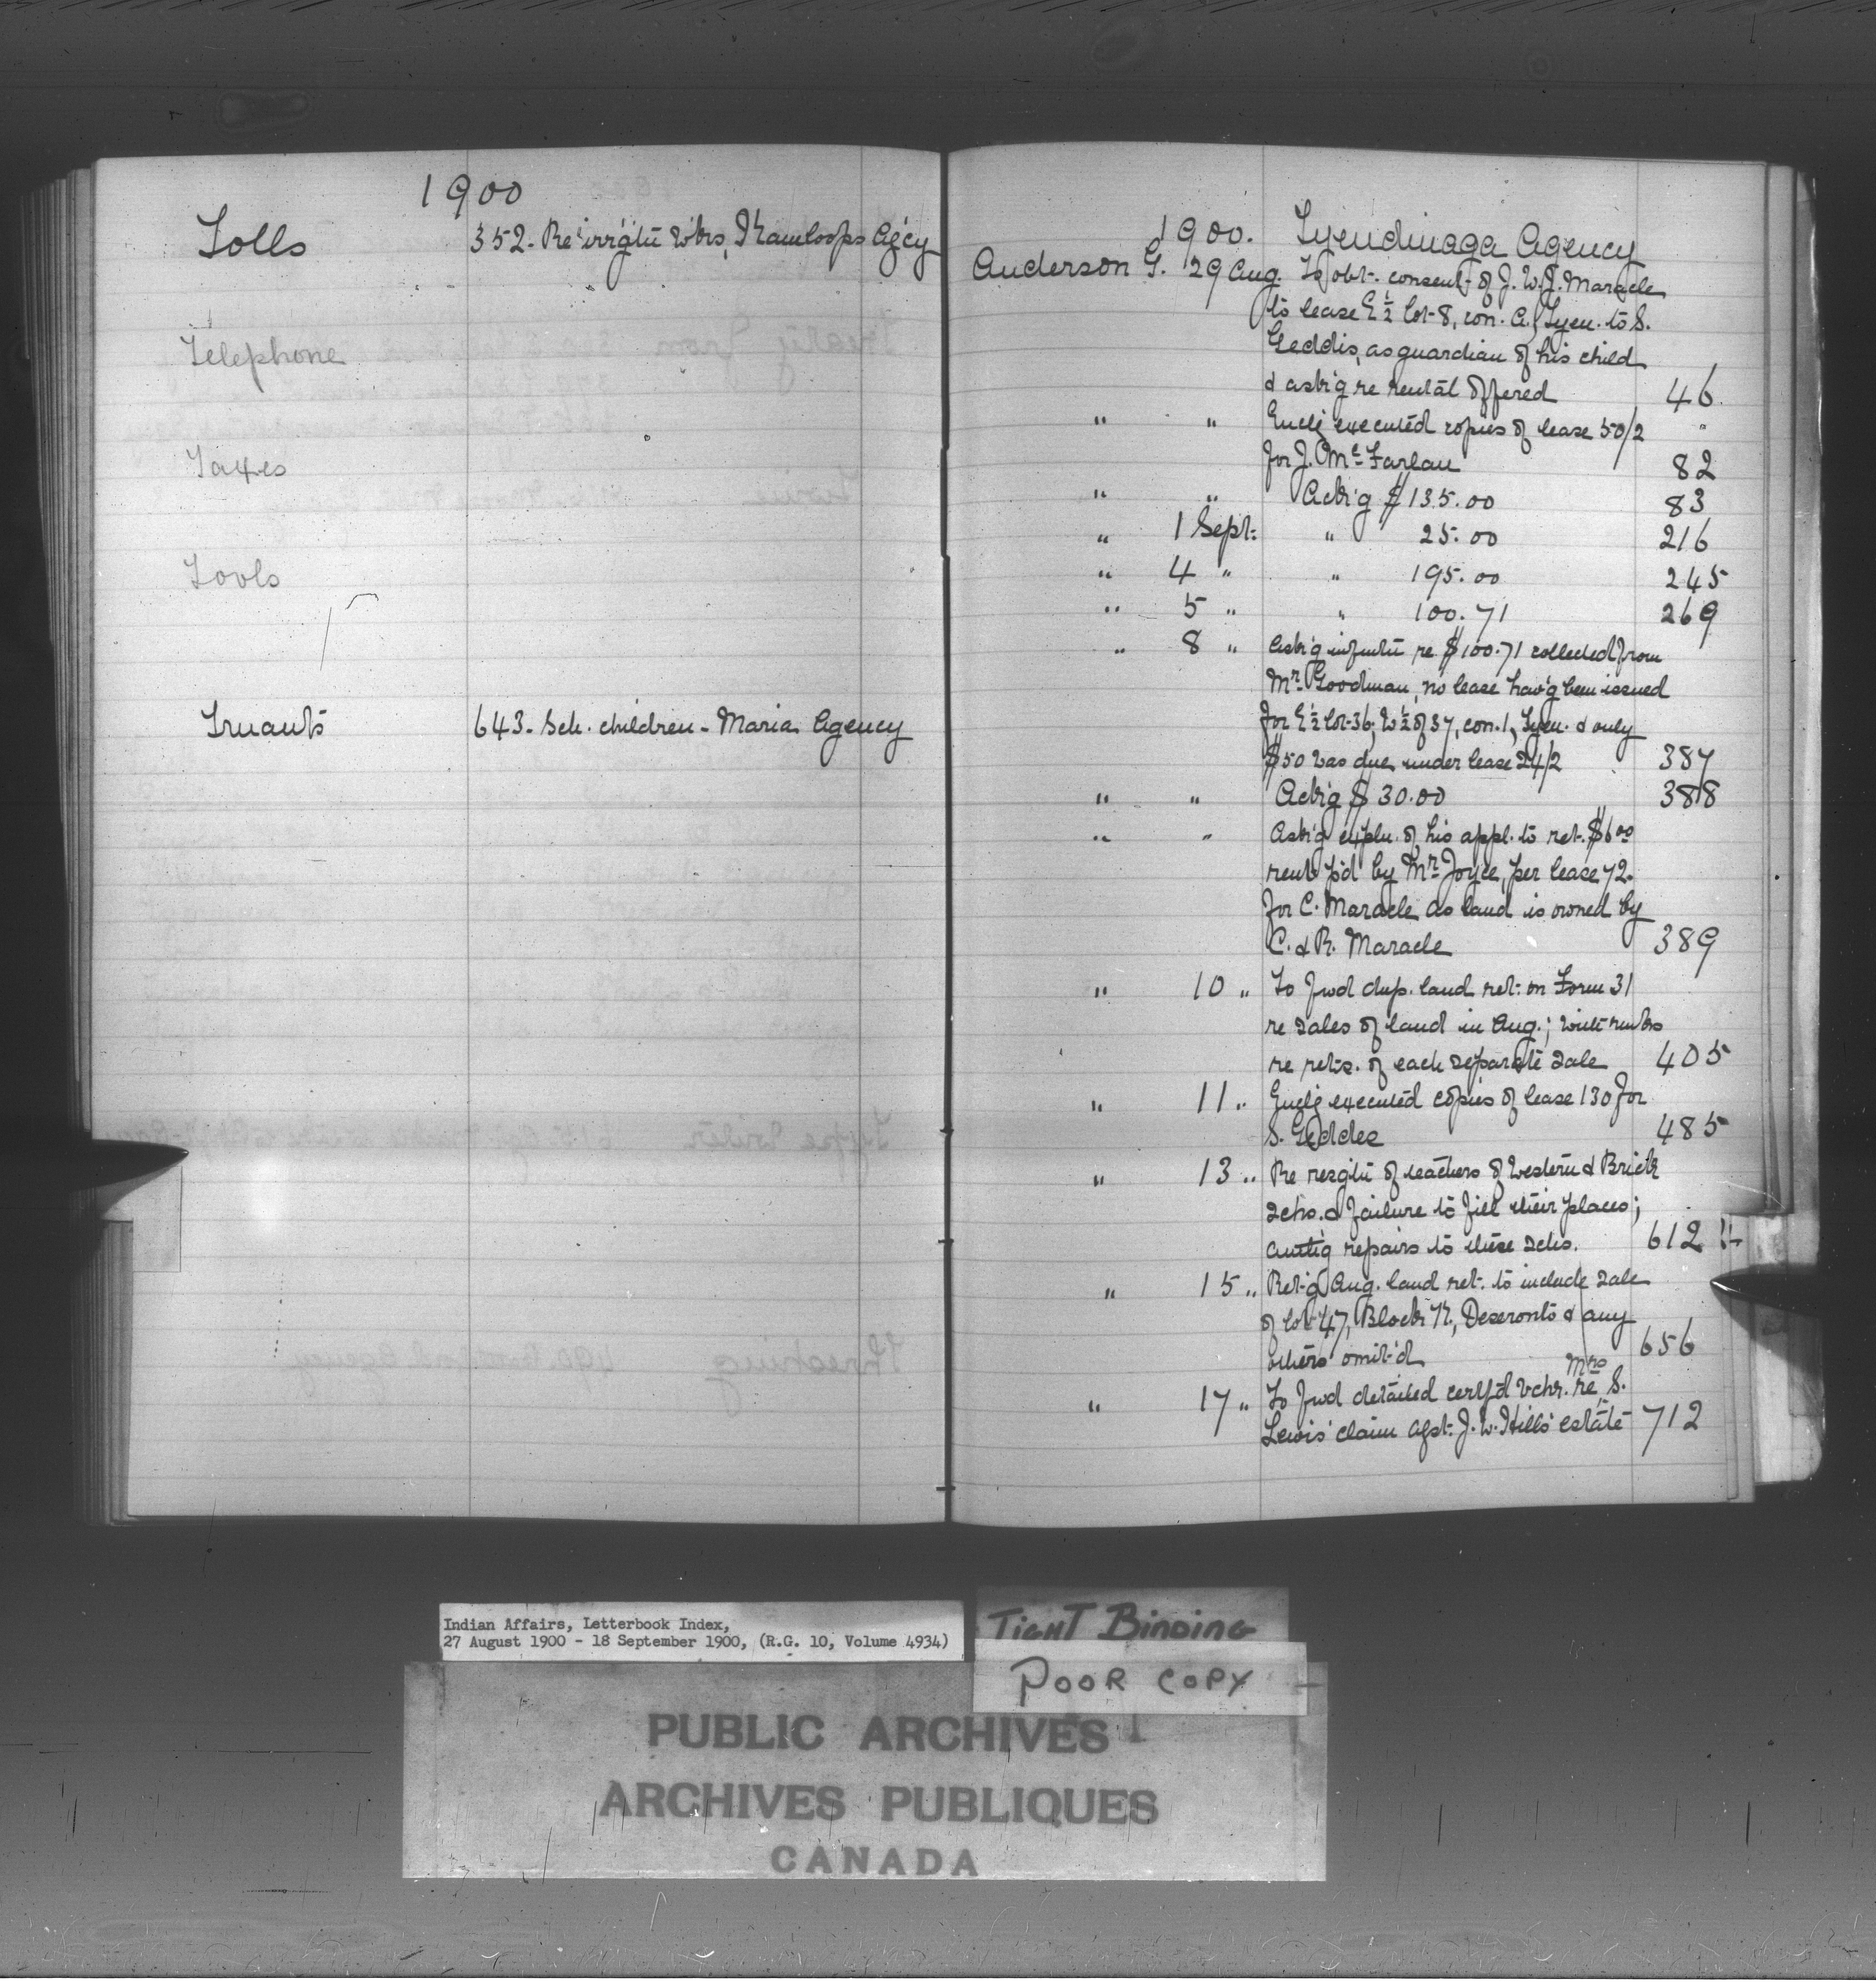 1900
Tolls 352- Re irrigt'n w'ks, Kamloops Agcy
Telephone
Taxes
Tools
Truants 643- Sch. children - Maria Agency
1900. Tyendinaga Agency
Anderson G. 29 Aug To obt. consent of J.W.J. Maracle
to lease E ½ lot 8, con. A, Tyen. to S.
Geddis, as guardian of his child
& ask'g re rental offered 46
" " Enclg executed copies of lease 50/2 "
for J. McFarlan 82
" " Ack'g $135.00 83
" 1 Sept. " 25.00 216
" 4 " " 195.00 245
" 5 " " 100.71 269
" 8 " Ask'g inform'tn re $100.71 collected from
Mr. Goodman, no lease hav'g been issued
for E ½ lot 36, W ½ of 37, con. 1, Tyen. & only
$50 was due under lease 24/2 387
" " Ack'g $30.00 388
" " Ask'g expln. of his appl. to ret. $6.00
rent p'd by Mr Joyce, per lease 72.
for C. Maracle as land is owned by
C. & R. Maracle 389
" 10 " To fwd dup. land ret. on Form 31
re sales of land in Aug.; with rem'ks
re rets. of each separate sale 405
" 11 " Enclg executed copies of lease 130 for
S. Geddes 485
" 13 " Re resg'tn of teachers of Western & Brick
schs. & failure to fill their places;
auth'g repairs to these schs. 612
" 15 " Ret'g Aug. land ret. to include sale
of lot 47, Block K, Deseronto & any
others omit'd 656
" 17 " To fwd detailed certf'd vchr. re Mrs S.
Lewis' claim agst. J.W. Hills' estate 712
Indian Affairs, Letterbook Index,
27 August 1900 - 18 September 1900, (R.G. 10, Volume 4934)
TIGHT BINDING
POOR COPY
PUBLIC ARCHIVES
ARCHIVES PUBLIQUES
CANADA